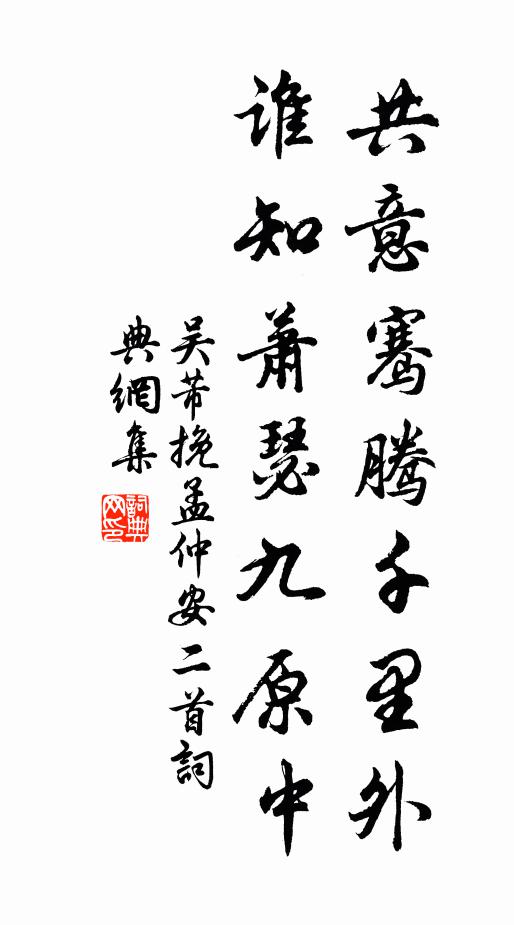 共意骞腾千里外
谁知萧瑟九原中
吴芾挽孟仲安二首詞
典網集
詞典
网印